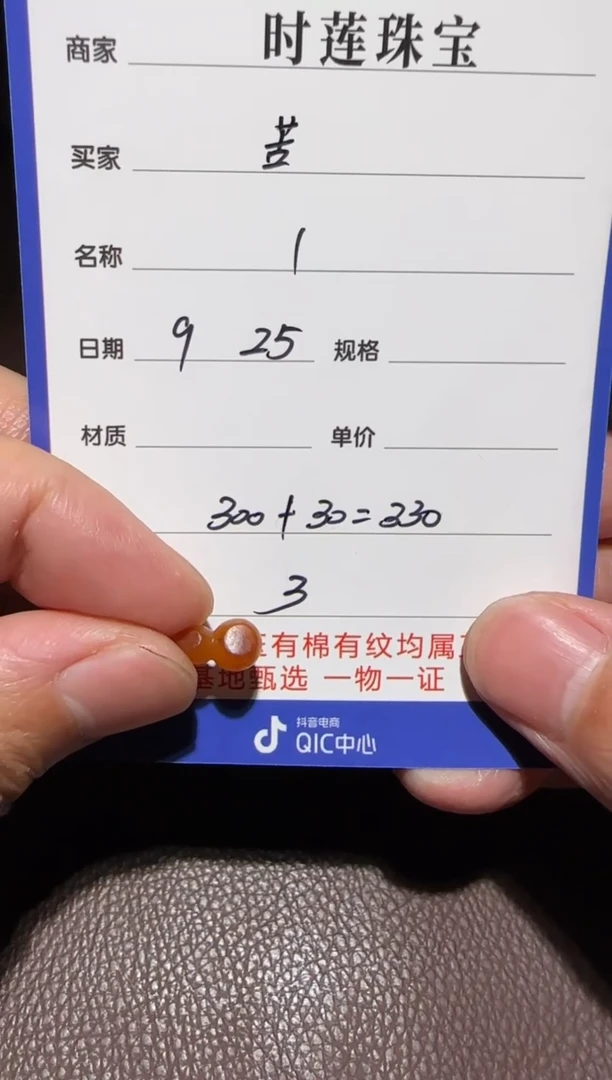 商家 时莲珠宝
买家 苦
名称 1
日期 9 25 规格
材质 单价
300+30=330
3
有棉有纹均属
基地甄选 一物一证
抖音电商
QIC中心